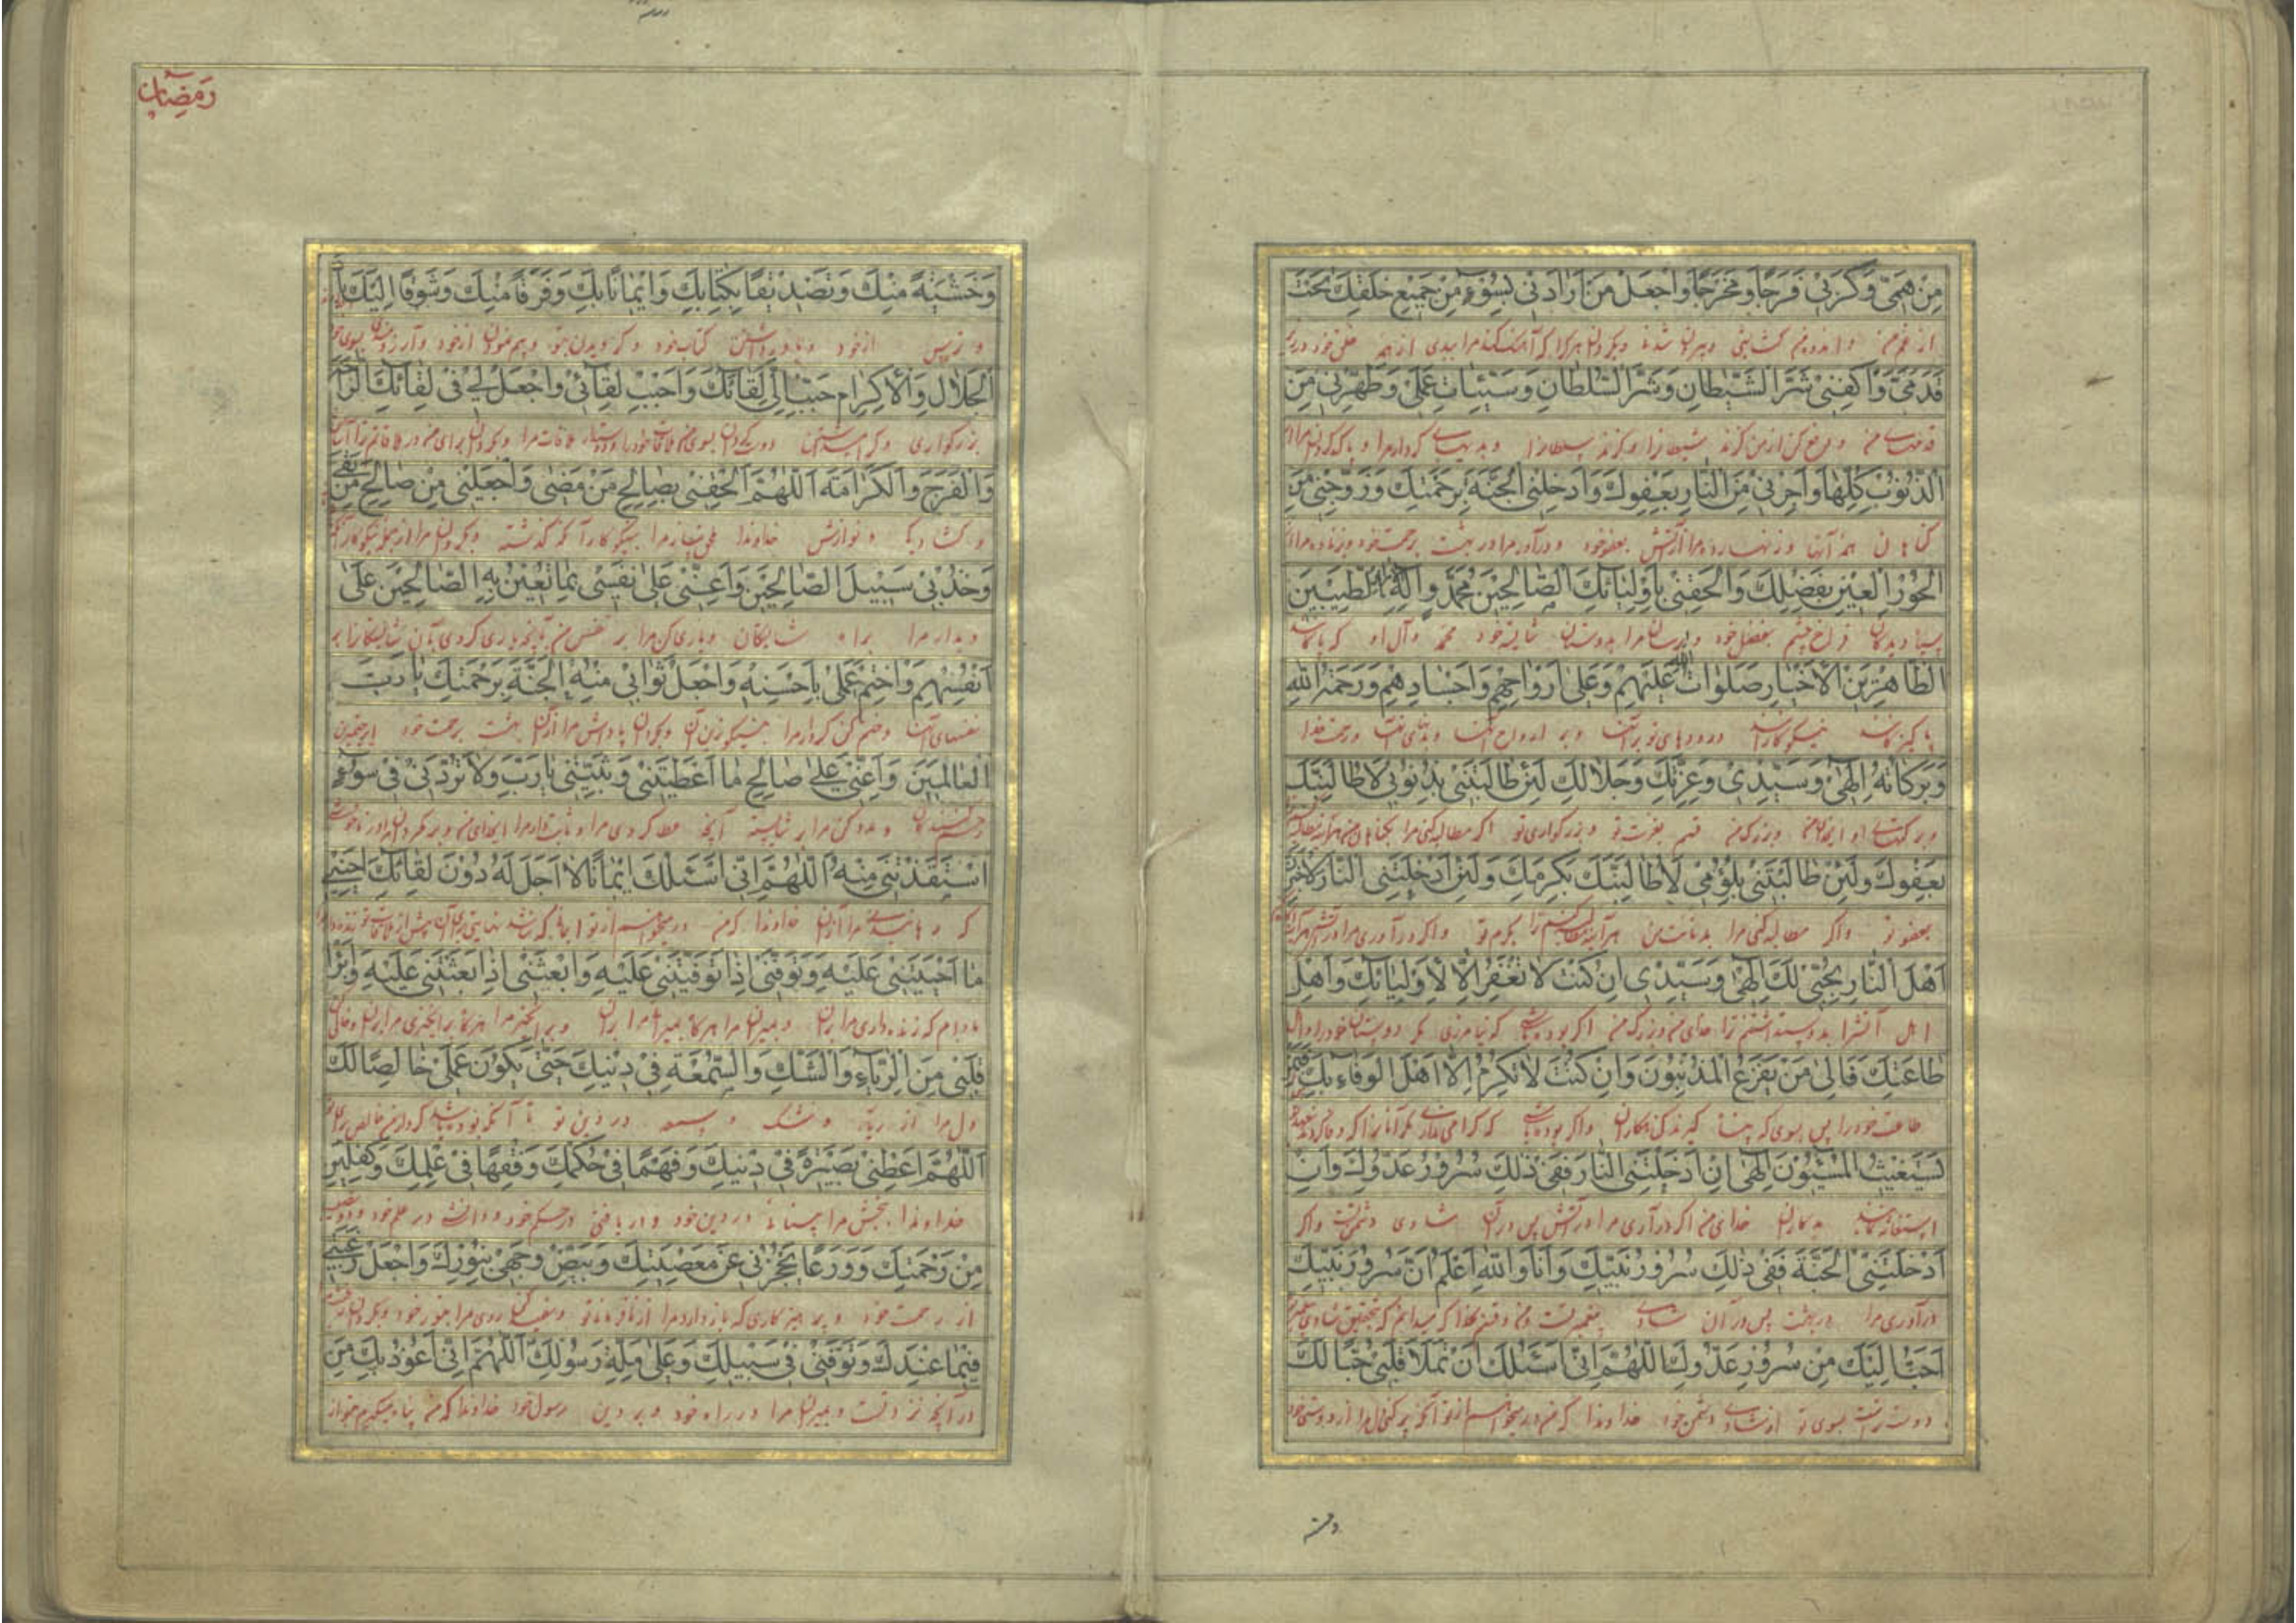 مِنْ هَمّى وَكَرْبى فَرَجًا وَمَخْرَجًا وَاجْعَلْ مَنْ اَرادَنى بِسُوۤءٍ مِنْ جَميعِ خَلْقِكَ تَحْتَ
از غم من و اندوه من گشایشی و بیرون شدنی و بگردان هر کرا که آهنگ کند مرا ببدی از همه خلق خود در زیر
قَدَمَىَّ وَاكْفِنى شَرَّ الشَّيْطانِ وَشَرَّ السُّلْطانِ وَسَيِّئاتِ عَمَلى وَطَهِّرْنى مِنَ
قدمهای من و دفع کن از من گزند شیطانرا و گزند سلطانرا و بدیهای کردار مرا و پاک گردان مرا از
الذُّنُوبِ كُلِّها وَاَجِرْنى مِنَ النّارِ بِعَفْوِكَ وَاَدْخِلْنِى الْجَنَّةَ بِرَحْمَتِكَ وَزَوِّجْنى مِنَ
گناهان همه آنها و زنهار ده مرا از آتش بعفو خود و درآور مرا در بهشت برحمت خود
الْحُورِ الْعينِ بِفَضْلِكَ وَاَلْحِقْنى بِاَوْلِيائِكَ الصّالِحينَ مُحَمَّدٍ وَالِهِ الْاَبْرارِ الطَّيِّبينَ
فراخ چشم بفضل خود و برسان مرا بدوستان شایسته خود محمد و آل او که پاکانند
الطّاهِرينَ الْاَخْيارِ صَلَواتُكَ عَلَيْهِمْ وَعَلى اَرْواحِهِمْ وَاَجْسادِهِمْ وَرَحْمَةُ اللهِ
پاکیزگانند نیکوکارانند درودهای تو بر آنها و بر ارواح آنها و بدنهای آنها و رحمت خدا
وَبَرَكاتُهُ اِلهى وَسَيِّدى وَعِزَّتِكَ وَجَلالِكَ لَئِنْ طالَبْتَنى بِذُنُوبى لَاُطالِبَنَّكَ
و برکتهای او ای خدای من و بزرگ من قسم بعزت تو و بزرگواری تو اگر مطالبه کنی مرا بگناهان من
بِعَفْوِكَ وَلَئِنْ طالَبْتَنى بِلُؤْمى لَاُطالِبَنَّكَ بِكَرَمِكَ وَلَئِنْ اَدْخَلْتَنِى النّارَ لَاُخْبِرَنَّ
بعفو تو و اگر مطالبه کنی مرا من هر آینه مطالبه کنم ترا بکرم تو و اگر درآوری مرا در آتش
اَهْلَ النّارِ بِحُبّى لَكَ اِلهى وَسَيِّدى اِنْ كُنْتَ لا تَغْفِرُ اِلّا لِاَوْلِيائِكَ وَاَهْلِ
اهل آتش را بدوست داشتنم ترا خدای من و بزرگ من اگر بوده باشی که نیامرزی مگر دوستان خود را و اهل
طاعَتِكَ فَاِلى مَنْ يَفْزَعُ الْمُذْنِبُونَ وَاِنْ كُنْتَ لا تُكْرِمُ اِلّا اَهْلَ الْوَفاءِ بِكَ فَبِمَنْ
طاعت خود را پس بسوی که پناه گیرند گناهکاران و اگر بوده باشی که گرامی نداری مگر آنان را که وفا کردند
يَسْتَغيثُ الْمُسيئُونَ اِلهى اِنْ اَدْخَلْتَنِى النّارَ فَفى ذلِكَ سُرُورُ عَدُوِّكَ وَاِنْ
استغاثه کنند بدکاران خدای من اگر درآوری مرا در آتش پس در آن شادی دشمن تست و اگر
اَدْخَلْتَنِى الْجَنَّةَ فَفى ذلِكَ سُرُورُ نَبِيِّكَ وَاَنَا وَاللهِ اَعْلَمُ اَنَّ سُرُورَ نَبِيِّكَ
درآوری مرا در بهشت پس در آن شادی پیغمبر تست و من قسم بخدا که میدانم که بتحقیق شادی پیغمبر
اَحَبُّ اِلَيْكَ مِنْ سُرُورِ عَدُوِّكَ اللّهُمَّ اِنّى اَسْئَلُكَ اَنْ تَمْلَأَ قَلْبى حُبًّا لَكَ
دوست‌تر است بسوی تو از شادی دشمن خود خداوندا که من در میخواهم از تو آنکه پر کنی دل مرا از دوستی خود
وخشیة
رَمَضان
وَخَشْيَةً مِنْكَ وَتَصْديقًا بِكِتابِكَ وَايمانًا بِكَ وَفَرَقًا مِنْكَ وَشَوْقًا اِلَيْكَ يا ذَا
و ترس از خود و باور داشتن کتاب خود و گرویدن بتو و بیم نمودن از خود و آرزومندی بسوی خود
الْجَلالِ وَالْاِكْرامِ حَبِّبْ اِلَىَّ لِقائَكَ وَاَحْبِبْ لِقائى وَاجْعَلْ لى فى لِقائِكَ الرّاحَةَ
بزرگواری
وَالْفَرَجَ وَالْكَرامَةَ اَللّهُمَّ اَلْحِقْنى بِصالِحِ مَنْ مَضى وَاجْعَلْنى مِنْ صالِحِ مَنْ بَقِىَ
و گشادگی و نوازش خداوندا ملحق ساز مرا بنیکوکار آنکه گذشته و بگردان مرا از جمله نیکوکار آنکه
وَخُذْ بى سَبيلَ الصّالِحينَ وَاَعِنّى عَلى نَفْسى بِما تُعينُ بِهِ الصّالِحينَ عَلى
و بدار مرا براه شایستگان و یاری کن مرا بر نفس من بآنچه یاری کردی بآن شایستگانرا بر
اَنْفُسِهِمْ وَاخْتِمْ عَمَلى بِاَحْسَنِهِ وَاجْعَلْ ثَوابى مِنْهُ الْجَنَّةَ بِرَحْمَتِكَ يا رَبَّ
نفسهای آنها و ختم کن کردار مرا بنیکوترین آن و بگردان پاداش مرا از آن بهشت برحمت خود
الْعالَمينَ وَاَعِنّى عَلى صالِحِ ما اَعْطَيْتَنى وَثَبِّتْنى يا رَبِّ وَلا تَرُدَّنى فى سُوۤءٍ
و مدد کن مرا بر شایسته آنچه عطا کردی مرا و ثابت دار مرا ای خدای من و بر مگردان مرا در
اسْتَنْقَذْتَنى مِنْهُ اَللّهُمَّ اِنّى اَسْئَلُكَ ايمانًا لا اَجَلَ لَهُ دُونَ لِقائِكَ اَحْيِنى
که رهانیدی مرا از آن خداوندا که من در میخواهم از تو
ما اَحْيَيْتَنى عَلَيْهِ وَتَوَفَّنى اِذا تَوَفَّيْتَنى عَلَيْهِ وَابْعَثْنى اِذا بَعَثْتَنى عَلَيْهِ وَاَبْرِأْ
مادام که زنده داری مرا بر آن و بمیران مرا هر گاه بمیرانی مرا بر آن و بر انگیز مرا هر گاه بر انگیزی مرا بر آن
قَلْبى مِنَ الرِّياۤءِ وَالشَّكِّ وَالسُّمْعَةِ فى دينِكَ حَتّى يَكُونَ عَمَلى خالِصًا لَكَ
دل مرا از ریا و شک و سمعه در دین تو تا آنکه بوده باشد کردار من خالص برای تو
اَللّهُمَّ اَعْطِنى بَصيرَةً فى دينِكَ وَفَهْمًا فى حُكْمِكَ وَفِقْهًا فى عِلْمِكَ وَكِفْلَيْنِ
خداوندا ببخش مرا بینائی در دین خود و دریافتی در حکم خود و دانشی در علم خود و دو نصیب
مِنْ رَحْمَتِكَ وَوَرَعًا يَحْجُزُنى عَنْ مَعْصِيَتِكَ وَبَيِّضْ وَجْهى بِنُورِكَ وَاجْعَلْ رَغْبَتى
از رحمت خود و پرهیزکاری که باز دارد مرا از نافرمانی تو و سفید کن روی مرا بنور خود و بگردان
فيما عِنْدَكَ وَتَوَفَّنى فى سَبيلِكَ وَعَلى مِلَّةِ رَسُولِكَ اَللّهُمَّ اِنّى اَعُوذُ بِكَ مِنَ
در آنچه نزد تست و بمیران مرا در راه خود و بر دین رسول خود خداوندا که من پناه میگیرم بتو از